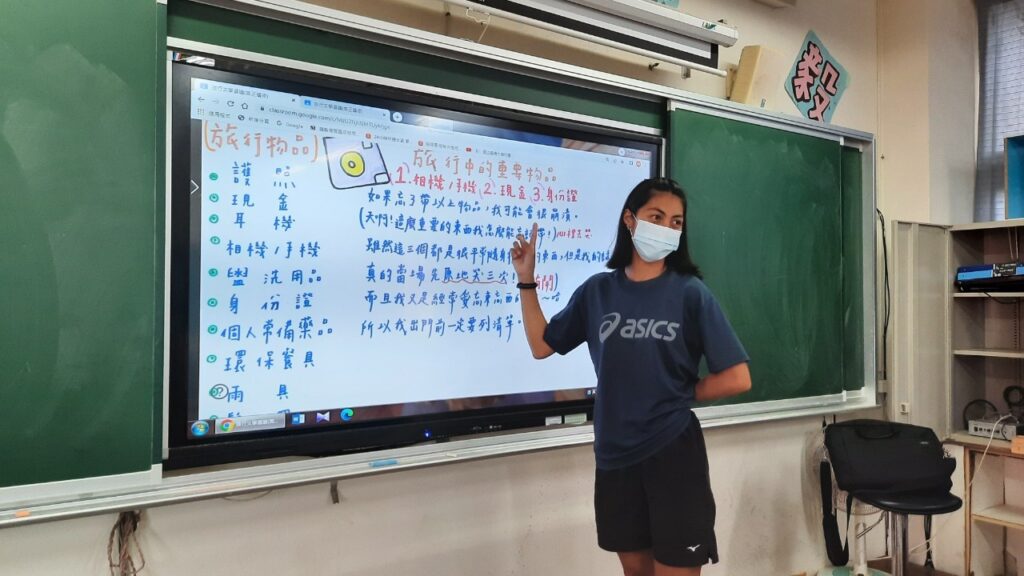 classroom.google.com
Google
(旅行物品)
護照
現金
耳機
相機/手機
盥洗用品
身份證
個人常備藥品
環保餐具
雨具
旅行中的重要物品
1. 相機/手機 2. 現金 3. 身份證
如果忘了帶以上物品,我可能會很崩潰。
(天啊!這麼重要的東西我怎麼能
雖然這三個都是很平常隨身 的東西,但是我的
真的當場先原地哭三次!
而且我又是經常
所以我出門前一定要列清單。
asics